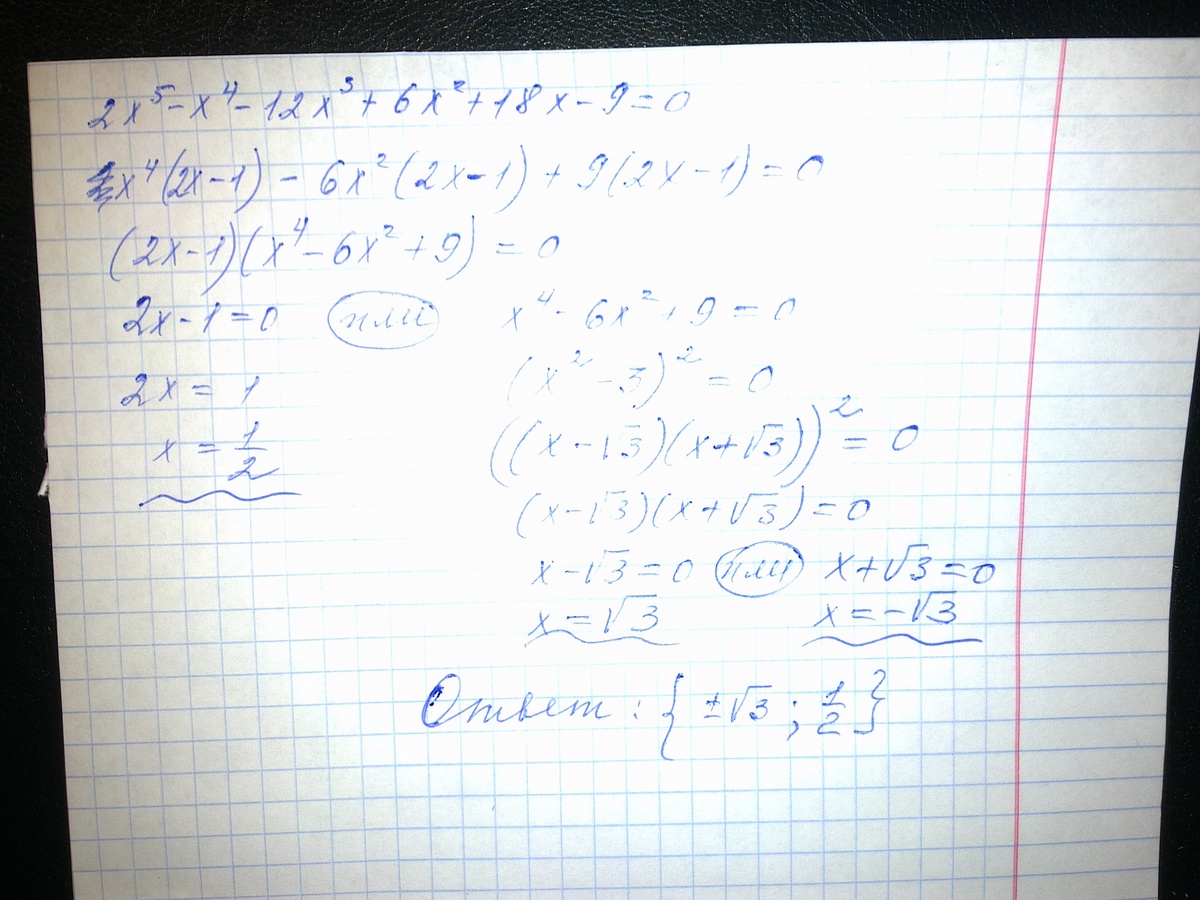 2x⁵ - x⁴ - 12x³ + 6x² + 18x - 9 = 0
x⁴(2x - 1) - 6x²(2x - 1) + 9(2x - 1) = 0
(2x - 1)(x⁴ - 6x² + 9) = 0
2x - 1 = 0 или x⁴ - 6x² + 9 = 0
(x² - 3)² = 0
2x = 1
((x - √3)(x + √3))² = 0
x = 1/2
(x - √3)(x + √3) = 0
x - √3 = 0 или x + √3 = 0
x = √3 x = -√3
Ответ: {±√3; 1/2}